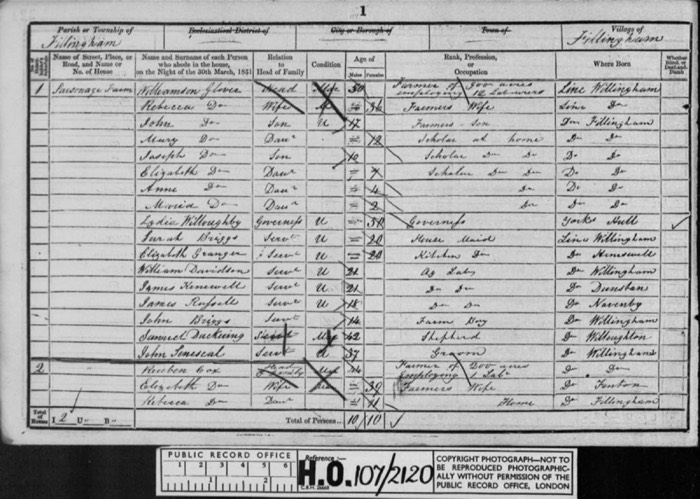 1
Parish or Township of Ecclesiastical District of City or Borough of Town of Village of
Fillingham Fillingham
Name of Street, Place, or Road, and Name or No. of House
Name and Surname of each Person who abode in the house, on the Night of the 30th March, 1851
Relation to Head of Family
Condition
Age of
Males Females
Rank, Profession, or Occupation
Where Born
Whether Blind, or Deaf-and-Dumb
1 Parsonage Farm Williamson Glover Head 50 Farmer of acres employing 12 Laborers Linc Willingham
Rebecca Do Wife M 36 Farmers Wife Linc Do
John Do Son U 17 Farmers Son Do Fillingham
Mary Do Daur 12 Scholar at home Do Do
Joseph Do Son 10 Scholar Do Do Do Do
Elizabeth Do Daur 7 Scholar Do Do Do Do
Anne Do Daur 4 Do Do Do
Maria Do Daur 2 Do Do Do
Lydia Willoughby Governess U 30 Governess Yorks Hull
Sarah Briggs Servt U 20 House Maid Linc Willingham
Elizabeth Granger Servt U 20 Kitchen Do Do Hemswell
William Davidson Servt U 21 Ag Lab Do Willingham
James Kenewell Servt U 21 Do Do Do Dunstan
James Russell Servt U 18 Do Do Do Navenby
John Briggs Servt 14 Farm Boy Do Willingham
Samuel Duckering Servt 42 Shepherd Do Willoughton
John Servt U 37 Groom Do Willingham
2 Reuben Cox Head of family 44 Farmer of 200 acres employing 1 Lab Do Do
Elizabeth Do Wife 39 Farmers Wife Do Fenton
Rebecca Do Daur 11 Home Do Fillingham
Total of Houses I 2 U B Total of Persons 10 10
PUBLIC RECORD OFFICE
1 2 3 4 5 6
Reference:-
H.O. 107/2120
COPYRIGHT PHOTOGRAPH—NOT TO
BE REPRODUCED PHOTOGRAPHIC-
ALLY WITHOUT PERMISSION OF THE
PUBLIC RECORD OFFICE, LONDON